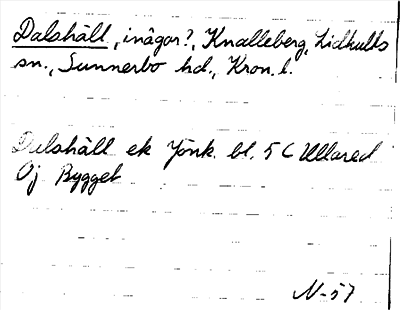 Dalshäll, inägor?, Knalleberg, Lidhults
sn., Sunnerbo hd., Kron. l.
Dalshäll ek Jönk. bl. 5 C Ullared
Öj Bygget
N-57